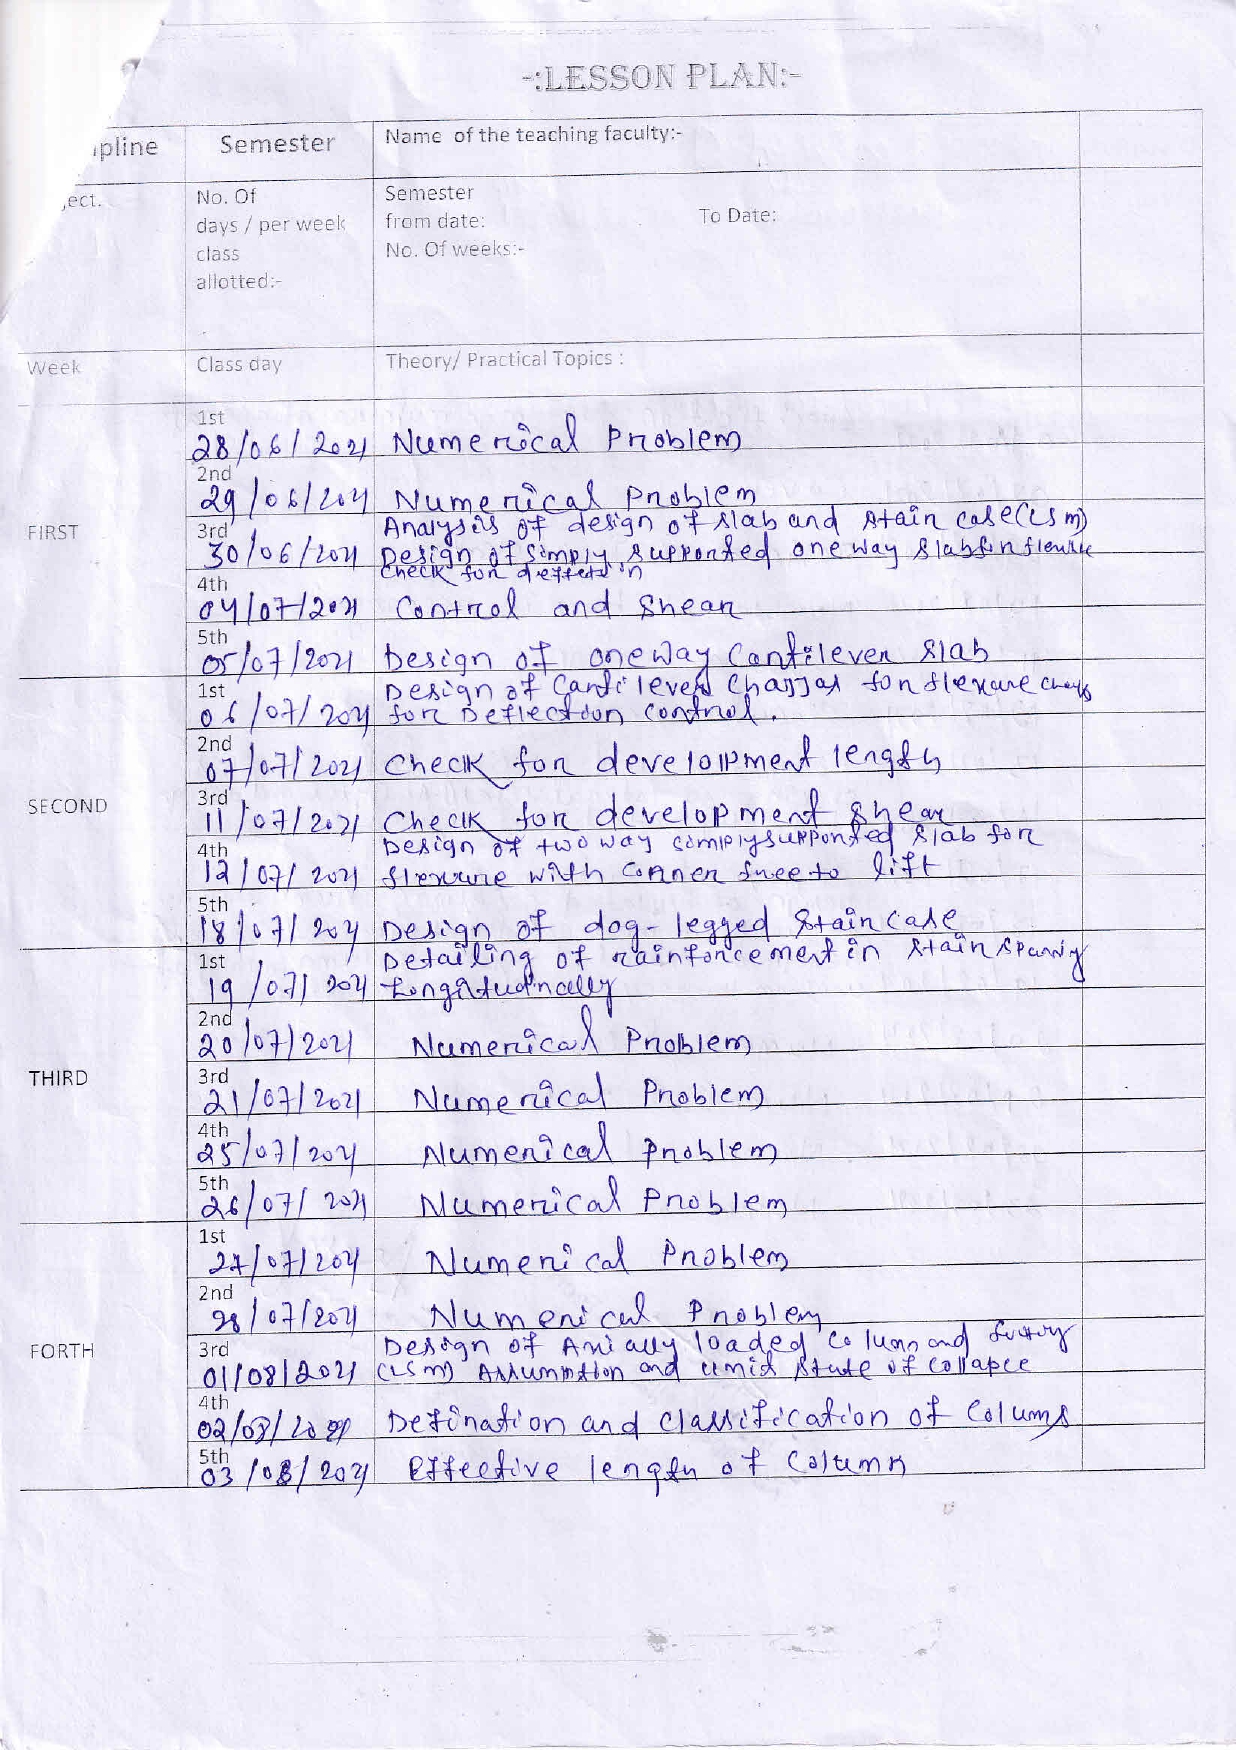 -:LESSON PLAN:-
ipline Semester Name of the teaching faculty:-
ject. No. Of Semester
days / per week from date: To Date:
class No. Of weeks:-
allotted:-
Week Class day Theory/ Practical Topics :
FIRST
1st
28/06/2021 Numerical Problem
2nd
29/06/2021 Numerical Problem
3rd Analysis of design of slab and stair case (LSM)
30/06/2021 Design of simply supported one way slabs for flexure
check for deflection
4th
04/07/2021 Control and shear
5th
05/07/2021 Design of one way Cantilever slab
SECOND
1st Design of Cantilever for flexure check
06/07/2021 for Deflection control.
2nd
07/07/2021 Check for development length
3rd
11/07/2021 Check for development shear
4th Design of two way simply supported slab for
12/07/2021 flexure with corner free to lift
5th
18/07/2021 Design of dog-legged stair case
THIRD
1st Detailing of rainforcement in stair spannig
19/07/2021 Longitudinally
2nd
20/07/2021 Numerical Problem
3rd
21/07/2021 Numerical Problem
4th
25/07/2021 Numerical Problem
5th
26/07/2021 Numerical Problem
FORTH
1st
27/07/2021 Numerical Problem
2nd
28/07/2021 Numerical Problem
3rd Design of Axially loaded Column and
01/08/2021 (LSM) Assumption and state of collapse
4th
02/08/2021 Defination and classification of Colums
5th
03/08/2021 Effective length of Column